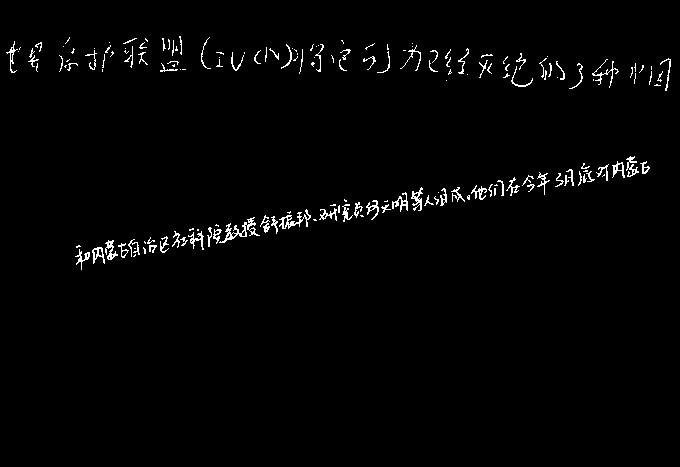 世界保护联盟(IUCN)将它列为已经灭绝的3种中国
和内蒙古自治区社科院教授舒振邦、研究员何天明等人组成。他们在今年3月底对内蒙古